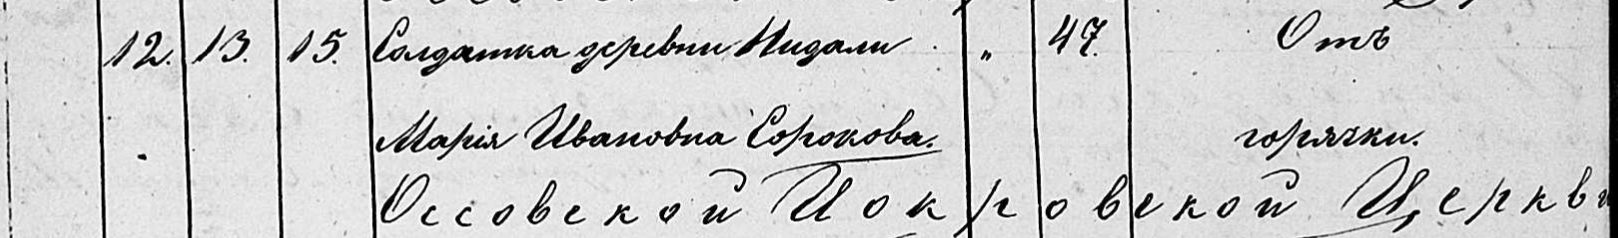 12. 13. 15. Солдатка деревни Нидали „ 47. Отъ
Марія Ивановна Сорокова. горячки.
Оссовской Покровской Церкви